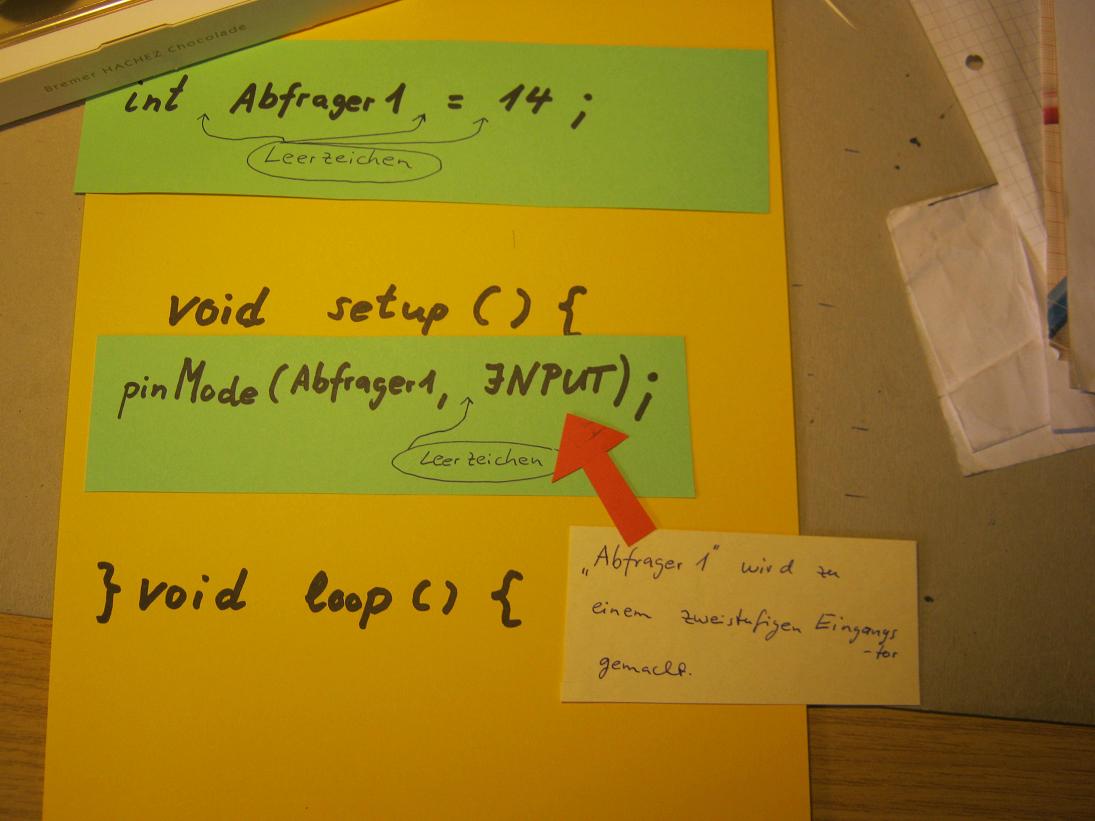 Bremer HACHEZ Chocolade
int Abfrager1 = 14 ;
Leerzeichen
void setup () {
pinMode(Abfrager1, INPUT);
Leerzeichen
„Abfrager 1" wird zu
einem zweistufigen Eingangs
-tor
gemacht.
} void loop () {